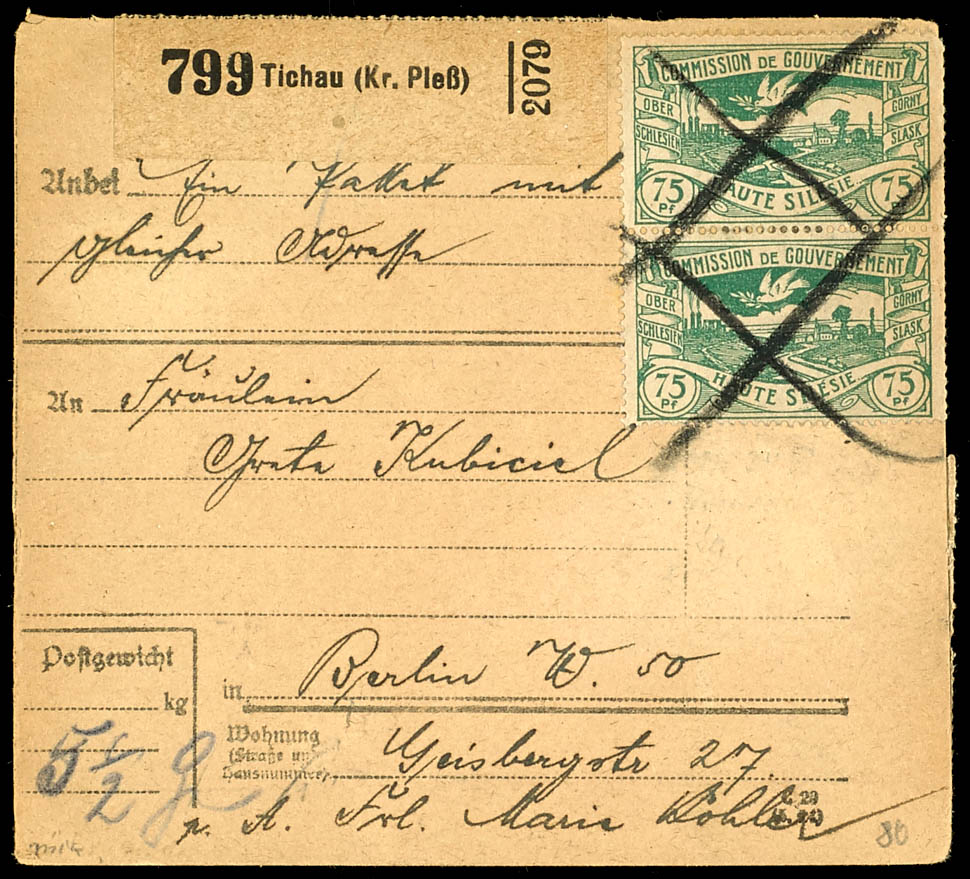 799 Tichau (Kr. Pleß) 2079
COMMISSION DE GOUVERNEMENT
OBER SCHLESIEN GÓRNY SLASK
75 Pf HAUTE SILÉSIE 75 Pf
COMMISSION DE GOUVERNEMENT
OBER SCHLESIEN GÓRNY SLASK
75 Pf HAUTE SILÉSIE 75 Pf
Anbei Ein Paket mit
gleicher Adresse
An Fräulein
Grete Kubiciel
Postgewicht
kg
5 1/2
in Berlin W. 50
Wohnung
(Straße und
Hausnummer)
Geisbergstr 27.
p. A. Frl. Marie Böhler
C 29
80